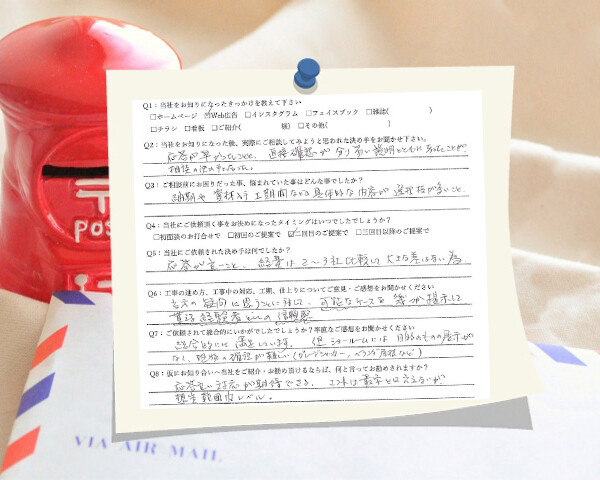 〒
POS
Q1：当社をお知りになったきっかけを教えて下さい
□ホームページ ☑Web広告 □インスタグラム □フェイスブック □雑誌( )
□チラシ □看板 □ご紹介( 様) □その他( )
Q2：当社をお知りになった後、実際にご相談してみようと思われた決め手をお聞かせ下さい。
応答が早かったこと、
相談の決め手
Q3：ご相談前にお困りだった事、悩まれていた事はどんな事でしたか？
納期や 工期間などの具体的な内容が 選択肢が多いこと、
Q4：当社にご依頼頂く事をお決めになったタイミングはいつでしたでしょうか？
□初面談のお打合せで □初回のご提案で ☑二回目のご提案で □三回目以降のご提案で
Q5：当社にご依頼された決め手は何でしたか？
応答が 良いこと、 2〜3社比較して 大きな差はない為
Q6：工事の進め方、工事中の対応、工期、仕上りについてご意見・ご感想をお聞かせください
疑問に思うことに対して、可能なケースを幾つか提示して
経験者としての信頼感
Q7：ご依頼されて総合的にいかがでしたでしょうか？率直なご感想をお聞かせください
総合的には満足しています。但 ショールームには 目的のものの展示が
なく、現物の確認が難しい
Q8：仮にお知り合いへ当社をご紹介・お勧め頂けるならば、何と言ってお勧めされますか？
応答良い対応が期待できる、コストは 最安とは言えないが
想定範囲内レベル。
VIA AIR MAIL